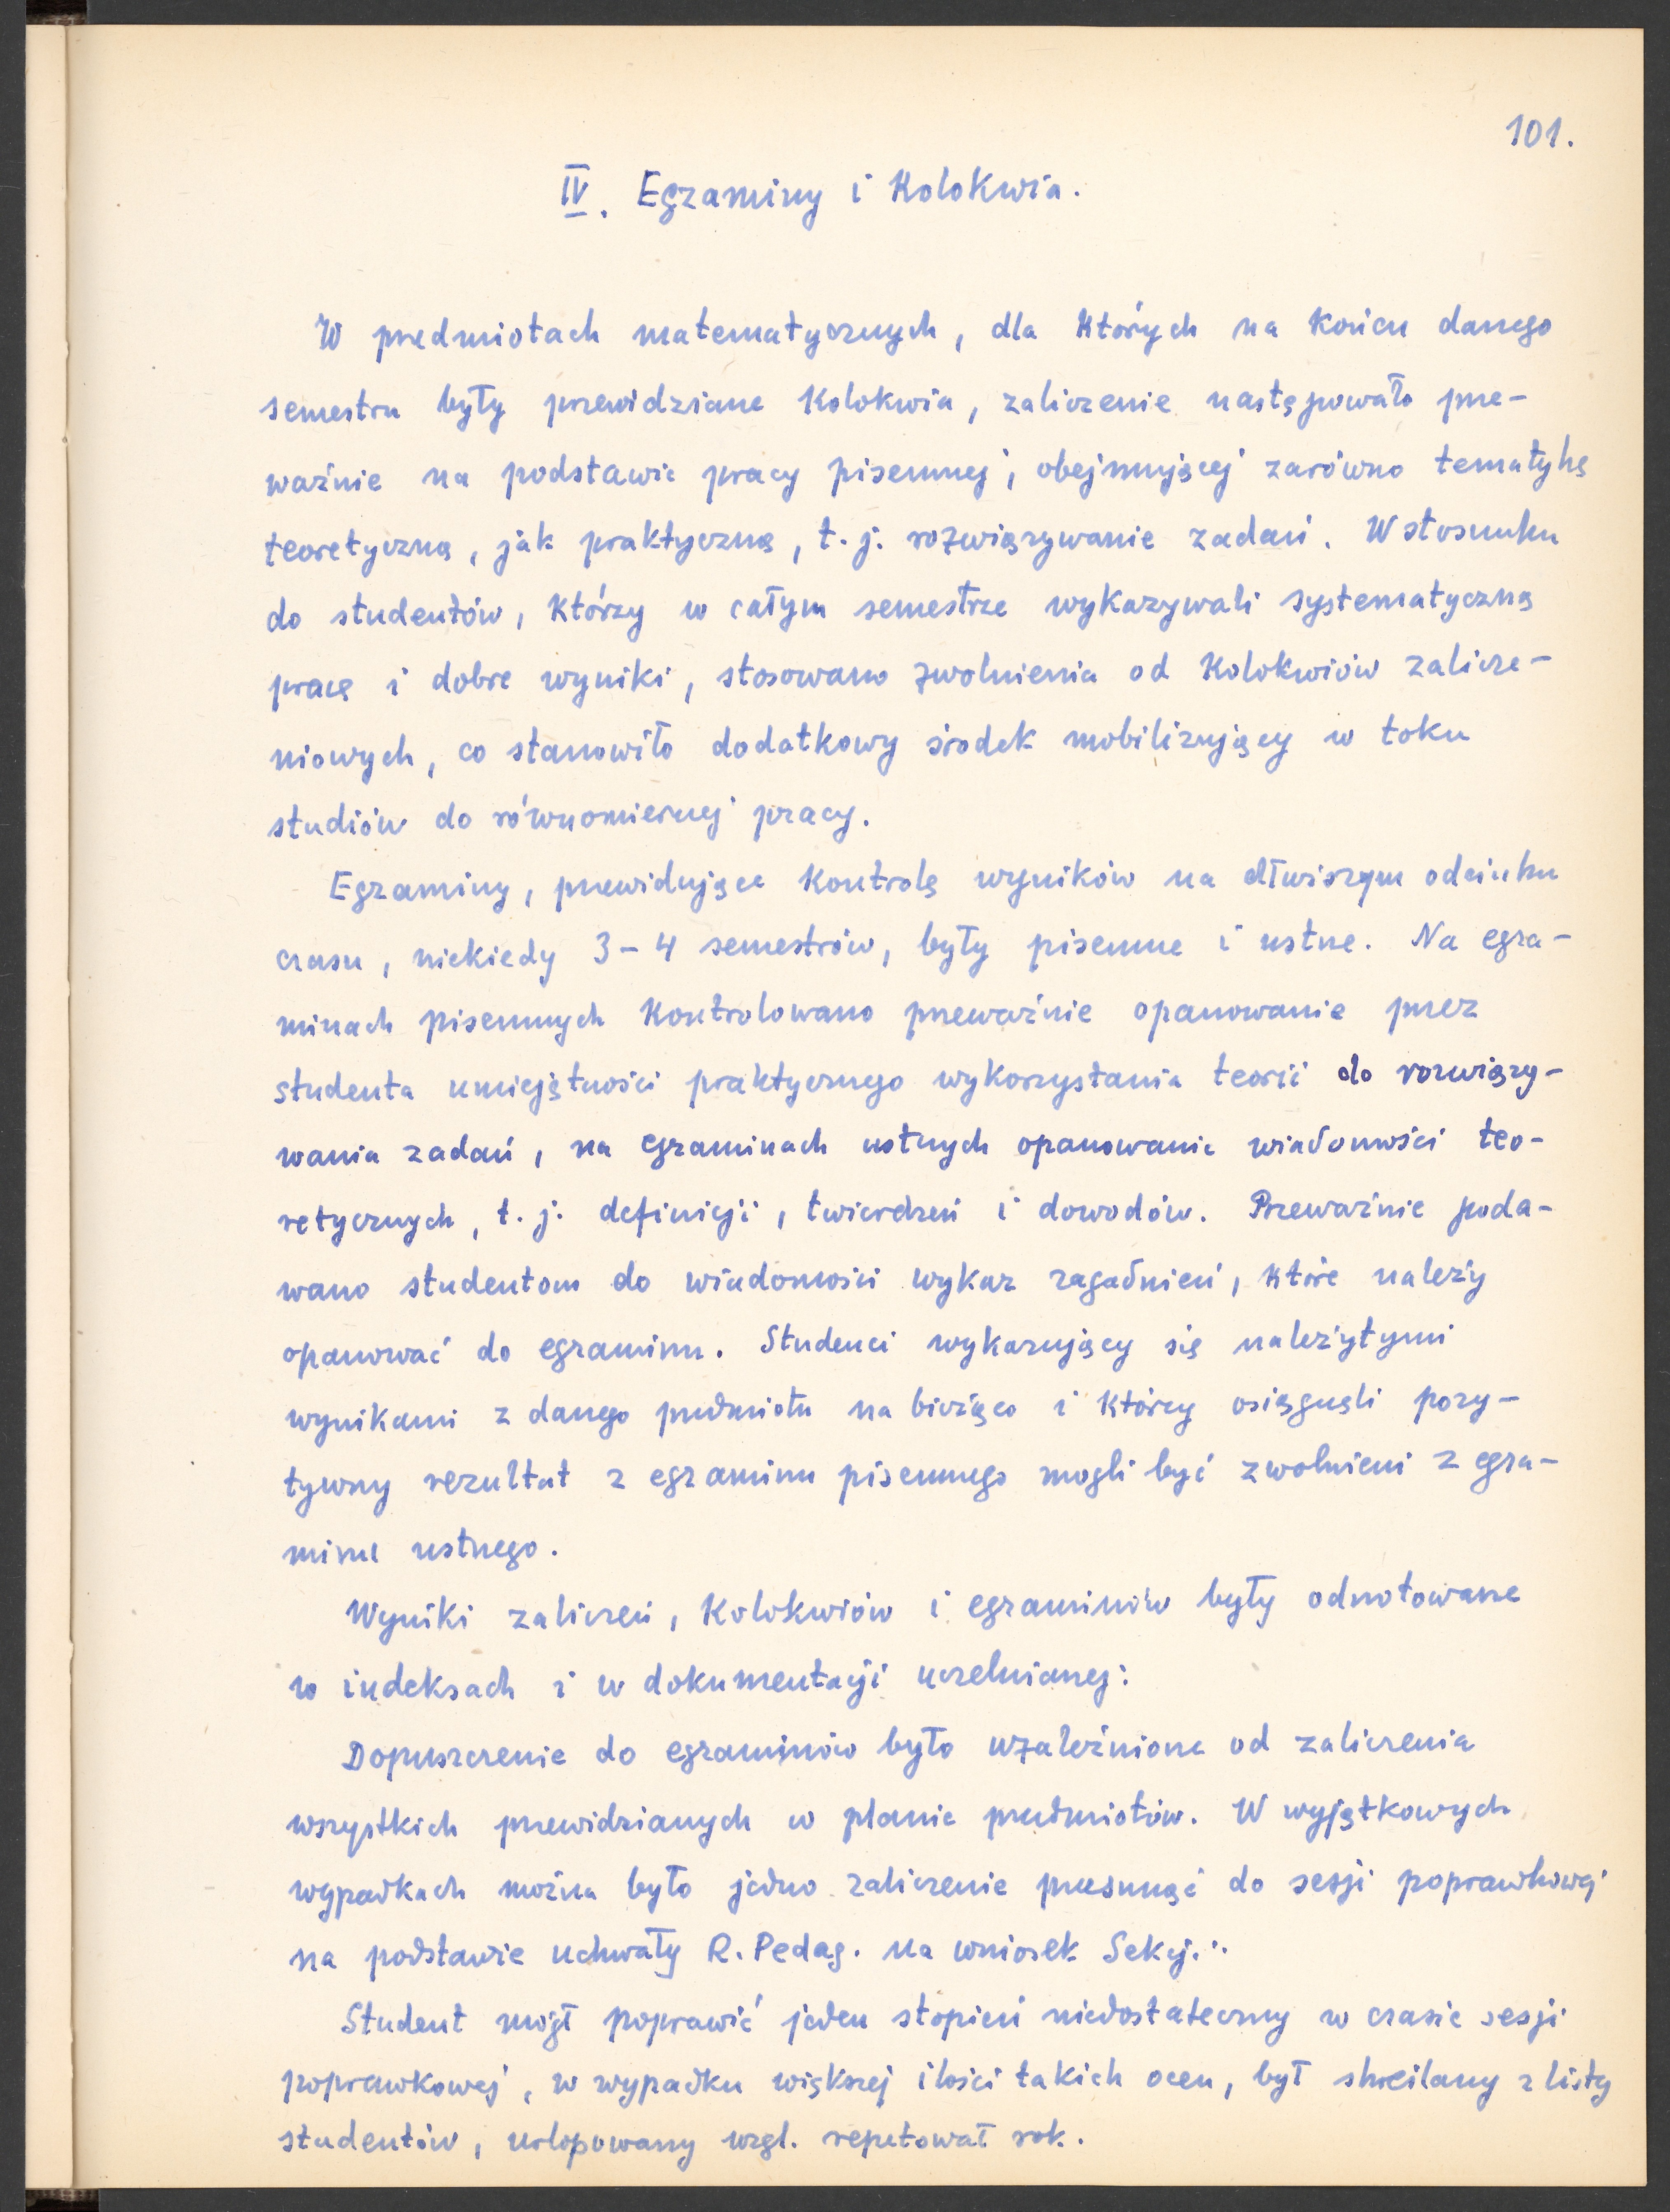 101.
IV. Egzaminy i Kolokwia.
W przedmiotach matematycznych, dla których na końcu danego
semestru były przewidziane Kolokwia, zaliczenie następowało prze-
ważnie na podstawie pracy pisemnej, obejmującej zarówno tematykę
teoretyczną, jak praktyczną, t.j. rozwiązywanie zadań. W stosunku
do studentów, którzy w całym semestrze wykazywali systematyczną
pracę i dobre wyniki, stosowano zwolnienia od Kolokwiów zalicze-
niowych, co stanowiło dodatkowy środek mobilizujący w toku
studiów do równomiernej pracy.
Egzaminy, przewidujące kontrolę wyników na dłuższym odcinku
czasu, niekiedy 3-4 semestrów, były pisemne i ustne. Na egza-
minach pisemnych kontrolowano przeważnie opanowanie przez
studenta umiejętności praktycznego wykorzystania teorii do rozwiązy-
wania zadań, na egzaminach ustnych opanowanie wiadomości teo-
retycznych, t.j. definicji, twierdzeń i dowodów. Przeważnie poda-
wano studentom do wiadomości wykaz zagadnień, które należy
opanować do egzaminu. Studenci wykazujący się należytymi
wynikami z danego przedmiotu na bieżąco i którzy osiągnęli pozy-
tywny rezultat z egzaminu pisemnego mogli być zwolnieni z egza-
minu ustnego.
Wyniki zaliczeń, Kolokwiów i egzaminów były odnotowane
w indeksach i w dokumentacji uczelnianej:
Dopuszczenie do egzaminów było uzależnione od zaliczenia
wszystkich przewidzianych w planie przedmiotów. W wyjątkowych
wypadkach można było jedno zaliczenie przesunąć do sesji poprawkowej
na podstawie uchwały R. Pedag. na wniosek Sekcji.
Student mógł poprawić jeden stopień niedostateczny w czasie sesji
poprawkowej, w wypadku większej ilości takich ocen, był skreślany z listy
studentów, urlopowany wzgl. repetował rok.